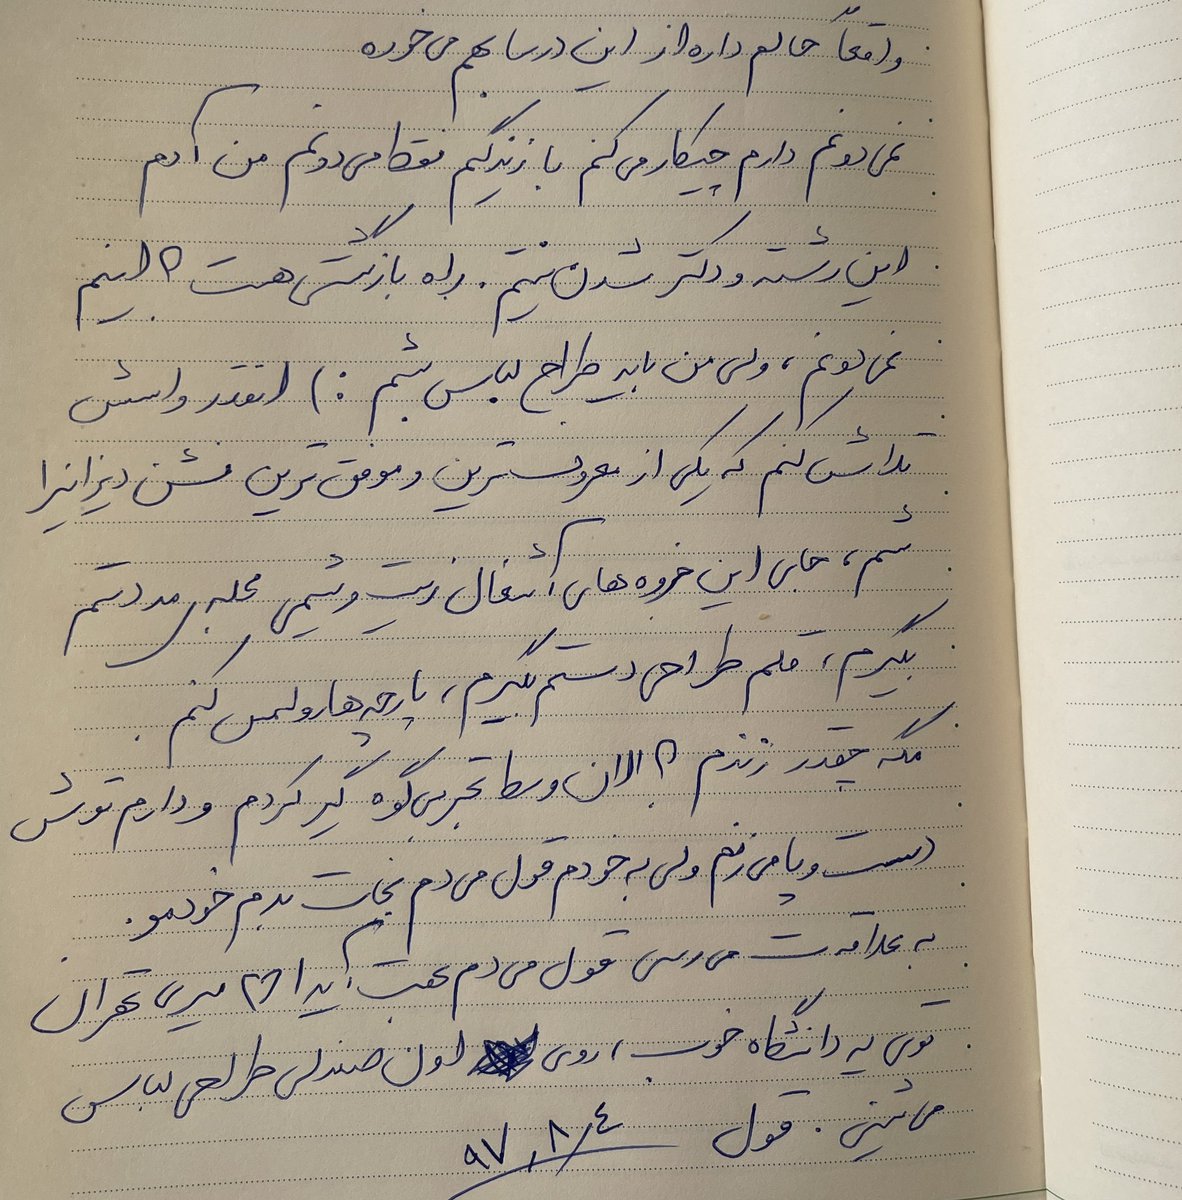 واقعاً حالم داره از این درسا بهم می‌خوره
نمی‌دونم دارم چیکار می‌کنم با زندگیم فقط می‌دونم من آدم
این رشته و دکتر شدن نیستم. راه بازگشتی هست؟ اینم
نمی‌دونم، ولی من باید طراح لباس بشم :) انقدر واسش
تلاش کنم که یکی از معروفترین و موفق‌ترین فشن دیزاینرا
شم، جای این جزوه‌های آشغال زیست و شیمی مجله مد دستم
بگیرم، قلم طراحی دستم بگیرم، پارچه‌هارو لمس کنم.
مگه چقدر زندم؟ الان وسط تجربی گوه گیر کردم و دارم توش
دست و پا می‌زنم ولی به خودم قول می‌دم نجات بدم خودمو.
به علاقه‌ت می‌رسی قول می‌دم بهت آیدا؟ میری تهران
توی یه دانشگاه خوب، روی اون صندلی طراحی لباس
می‌شینی. قول ۹۷/۸/۴